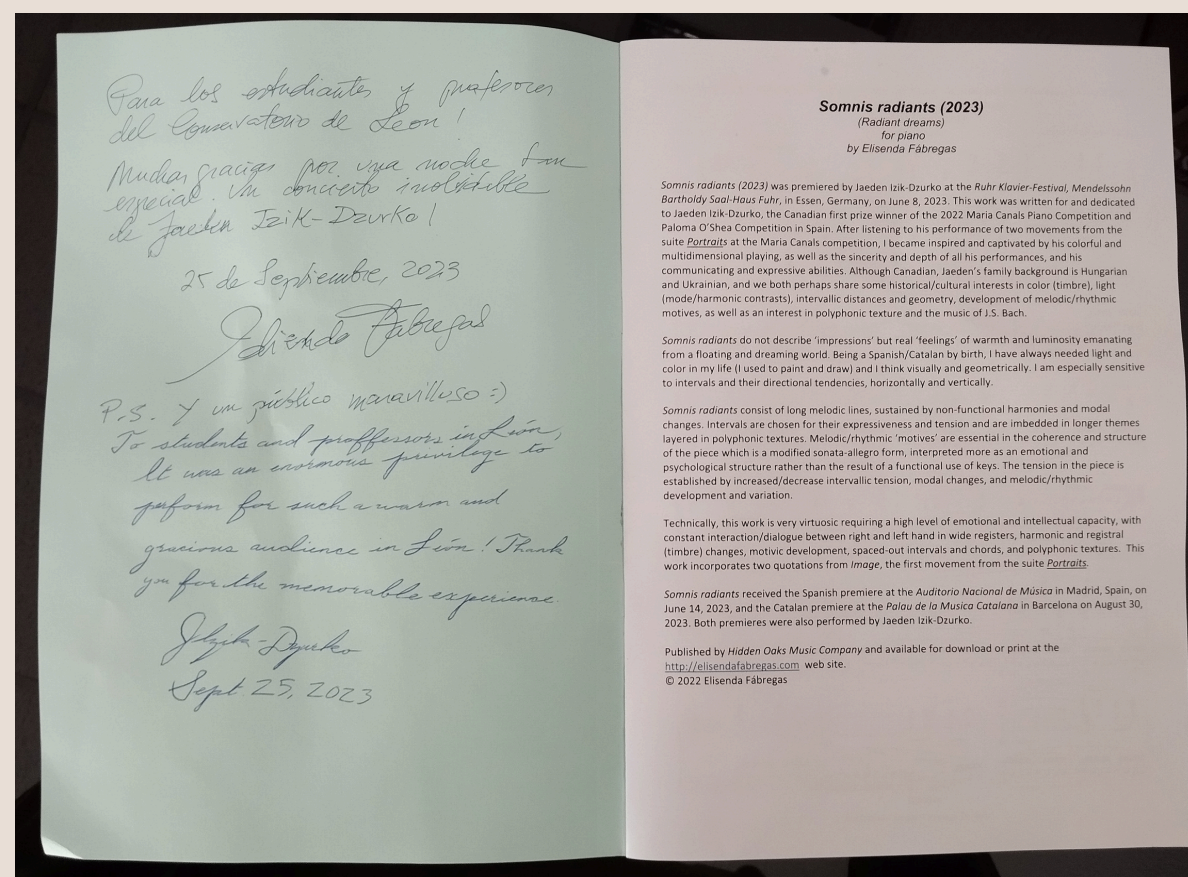 Para los estudiantes y profesores
del Conservatorio de León!
Muchas gracias por una noche tan
especial. Un concierto inolvidable
de Jaeden Izik-Dzurko!
25 de Septiembre, 2023
Elisenda Fábregas
P.S. Y un público maravilloso :)
To students and proffessors in León,
It was an enormous privilege to
perform for such a warm and
gracious audience in León! Thank
you for the memorable experience.
JIzik-Dzurko
Sept. 25, 2023
Somnis radiants (2023)
(Radiant dreams)
for piano
by Elisenda Fábregas
Somnis radiants (2023) was premiered by Jaeden Izik-Dzurko at the Ruhr Klavier-Festival, Mendelssohn
Bartholdy Saal-Haus Fuhr, in Essen, Germany, on June 8, 2023. This work was written for and dedicated
to Jaeden Izik-Dzurko, the Canadian first prize winner of the 2022 Maria Canals Piano Competition and
Paloma O'Shea Competition in Spain. After listening to his performance of two movements from the
suite Portraits at the Maria Canals competition, I became inspired and captivated by his colorful and
multidimensional playing, as well as the sincerity and depth of all his performances, and his
communicating and expressive abilities. Although Canadian, Jaeden's family background is Hungarian
and Ukrainian, and we both perhaps share some historical/cultural interests in color (timbre), light
(mode/harmonic contrasts), intervallic distances and geometry, development of melodic/rhythmic
motives, as well as an interest in polyphonic texture and the music of J.S. Bach.
Somnis radiants do not describe 'impressions' but real 'feelings' of warmth and luminosity emanating
from a floating and dreaming world. Being a Spanish/Catalan by birth, I have always needed light and
color in my life (I used to paint and draw) and I think visually and geometrically. I am especially sensitive
to intervals and their directional tendencies, horizontally and vertically.
Somnis radiants consist of long melodic lines, sustained by non-functional harmonies and modal
changes. Intervals are chosen for their expressiveness and tension and are imbedded in longer themes
layered in polyphonic textures. Melodic/rhythmic 'motives' are essential in the coherence and structure
of the piece which is a modified sonata-allegro form, interpreted more as an emotional and
psychological structure rather than the result of a functional use of keys. The tension in the piece is
established by increased/decrease intervallic tension, modal changes, and melodic/rhythmic
development and variation.
Technically, this work is very virtuosic requiring a high level of emotional and intellectual capacity, with
constant interaction/dialogue between right and left hand in wide registers, harmonic and registral
(timbre) changes, motivic development, spaced-out intervals and chords, and polyphonic textures. This
work incorporates two quotations from Image, the first movement from the suite Portraits.
Somnis radiants received the Spanish premiere at the Auditorio Nacional de Música in Madrid, Spain, on
June 14, 2023, and the Catalan premiere at the Palau de la Musica Catalana in Barcelona on August 30,
2023. Both premieres were also performed by Jaeden Izik-Dzurko.
Published by Hidden Oaks Music Company and available for download or print at the
http://elisendafabregas.com web site.
© 2022 Elisenda Fábregas